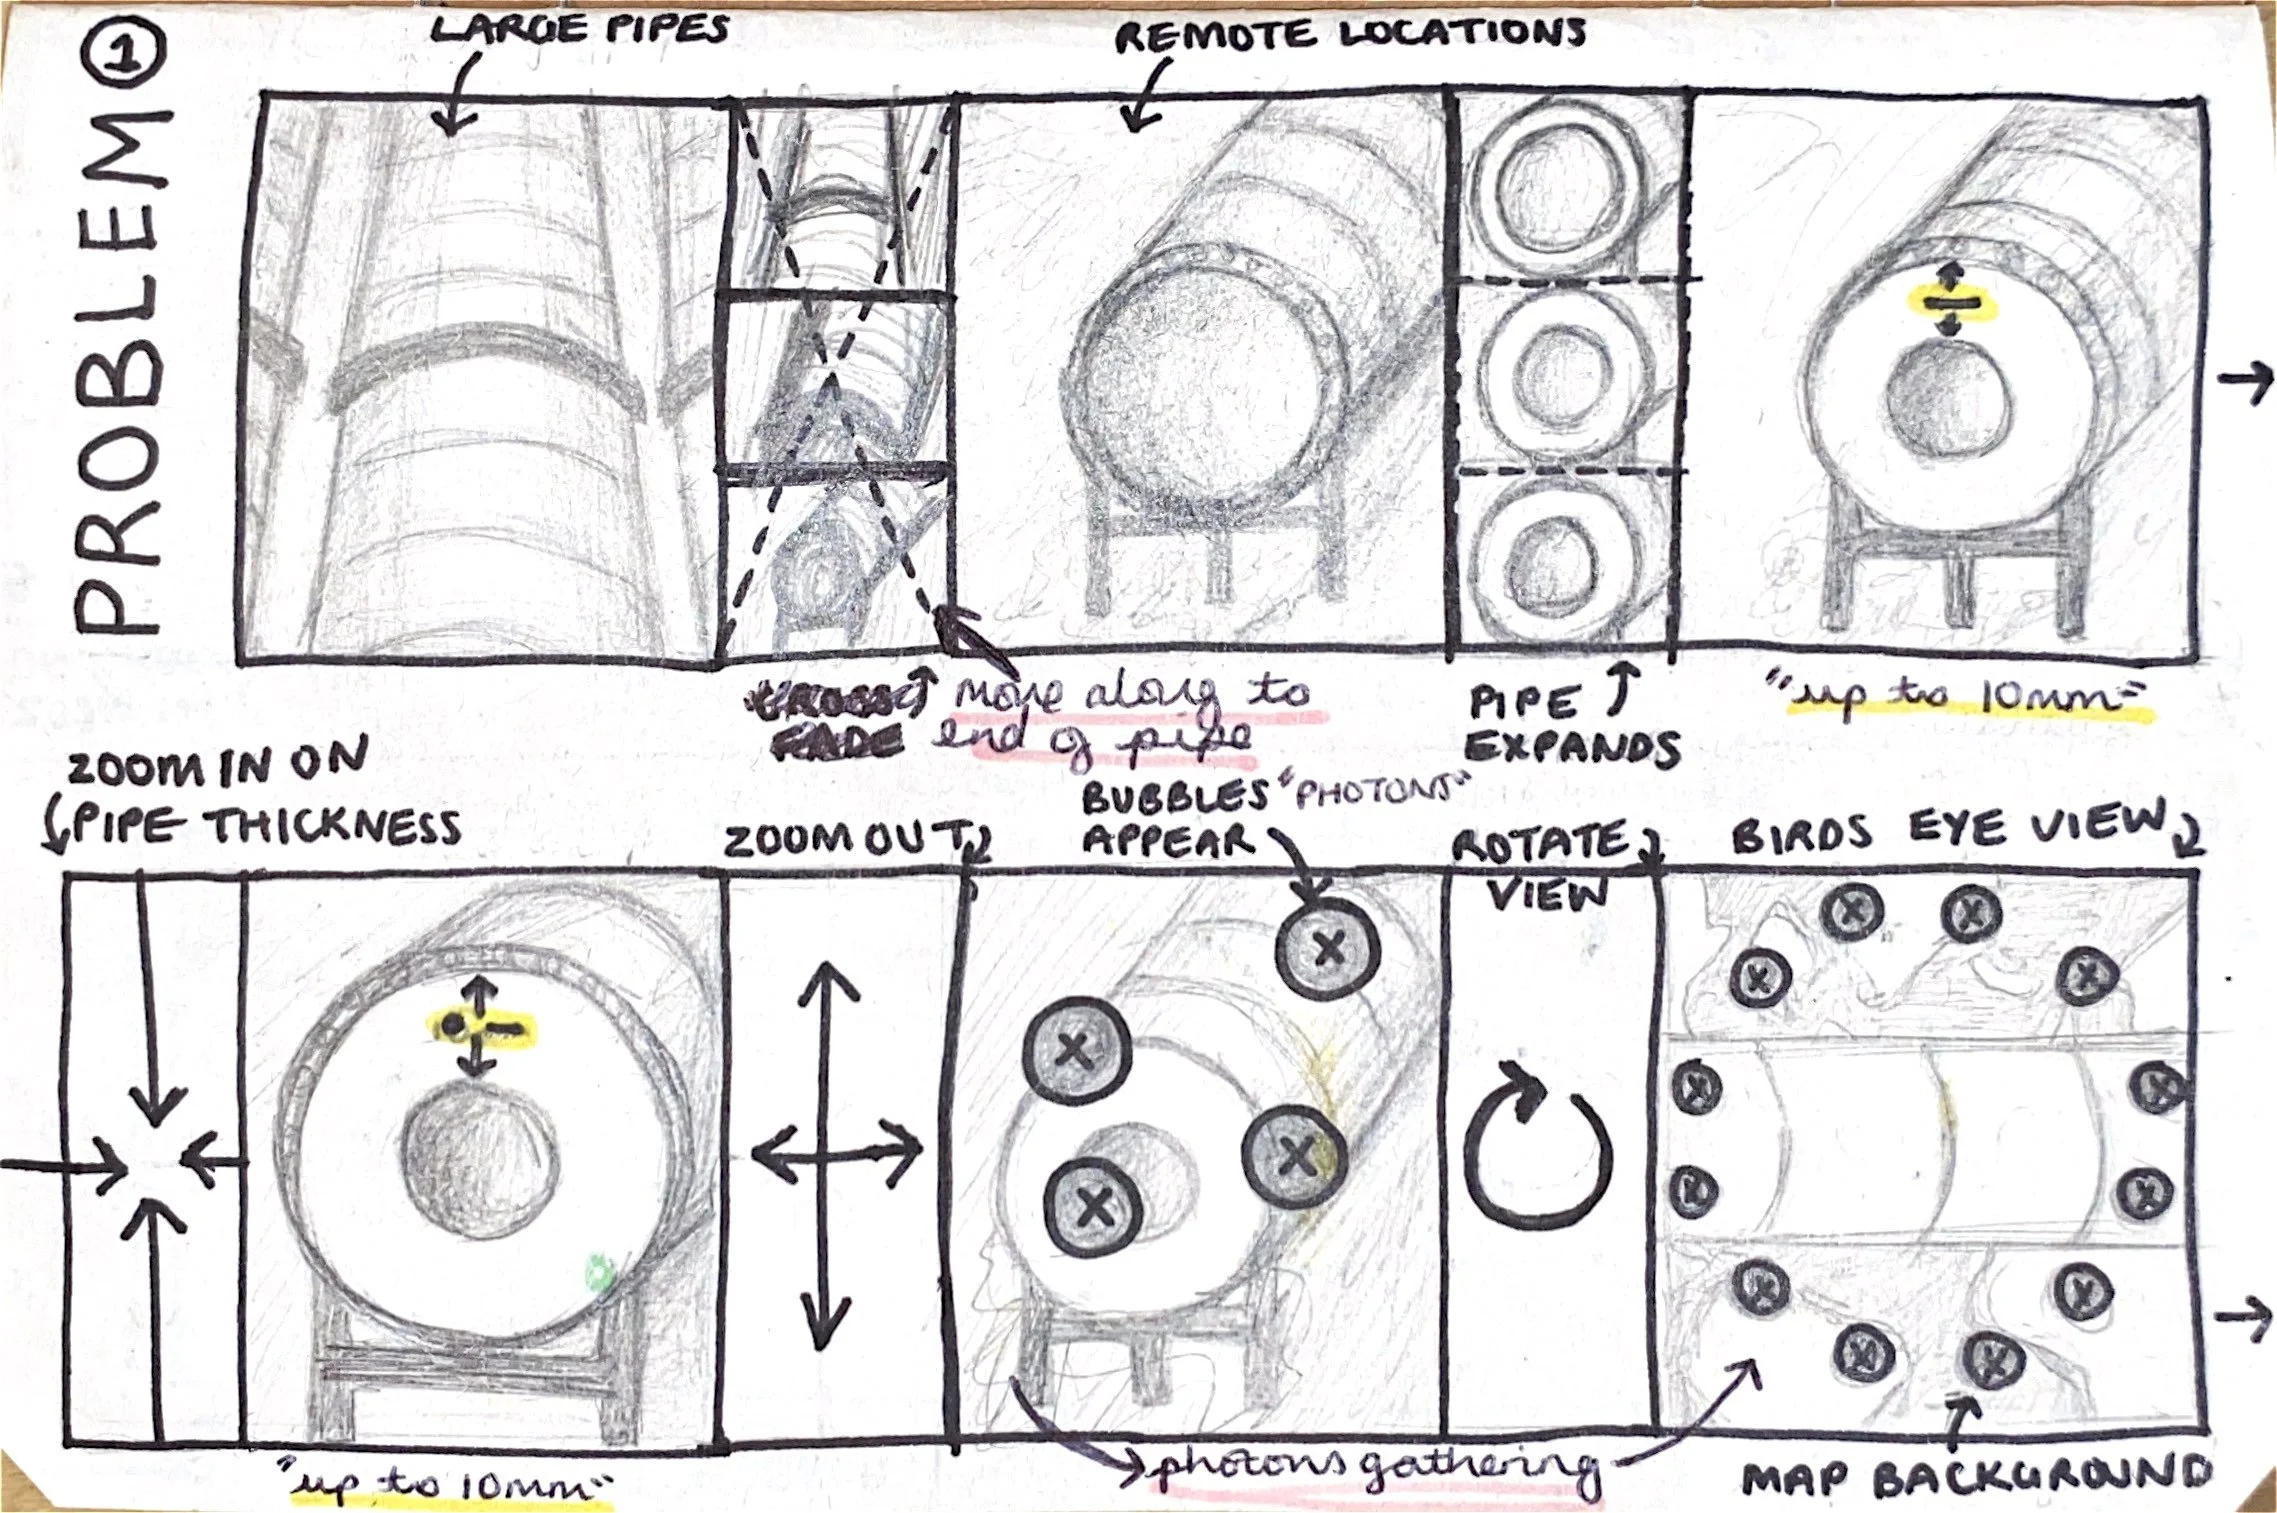 ①
PROBLEM
LARGE PIPES
REMOTE LOCATIONS
CROSS
FADE
move along to
end of pipe
PIPE
EXPANDS
"up to 10mm"
ZOOM IN ON
PIPE THICKNESS
ZOOM OUT
BUBBLES "PHOTONS"
APPEAR
ROTATE
VIEW
BIRDS EYE VIEW
"up to 10mm"
photons gathering
MAP BACKGROUND